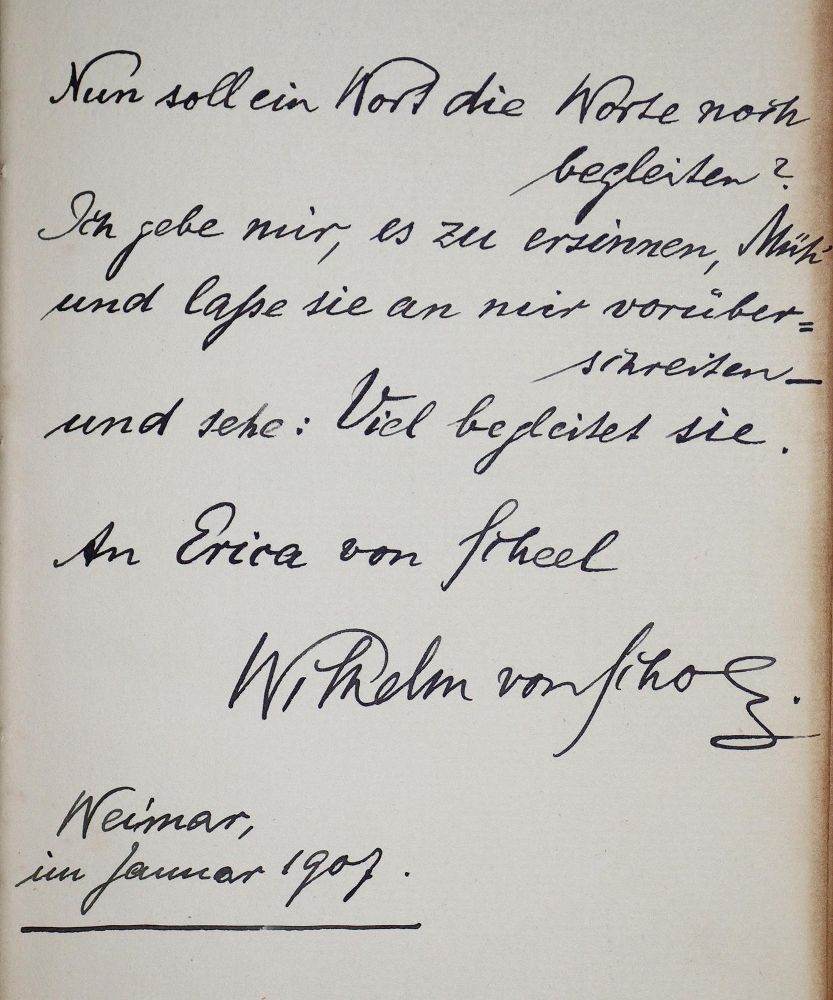 Nun soll ein Wort die Worte noch
begleiten?
Ich gebe mir, es zu ersinnen, Müh'
und laße sie an mir vorüber=
schreiten –
und sehe: Viel begleitet sie.
An Erica von Scheel
Wilhelm von Scholz.
Weimar,
im Januar 1907.